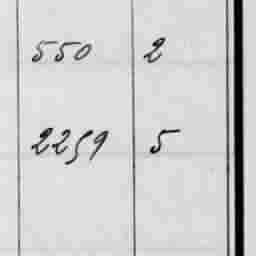 550 2
2259 5